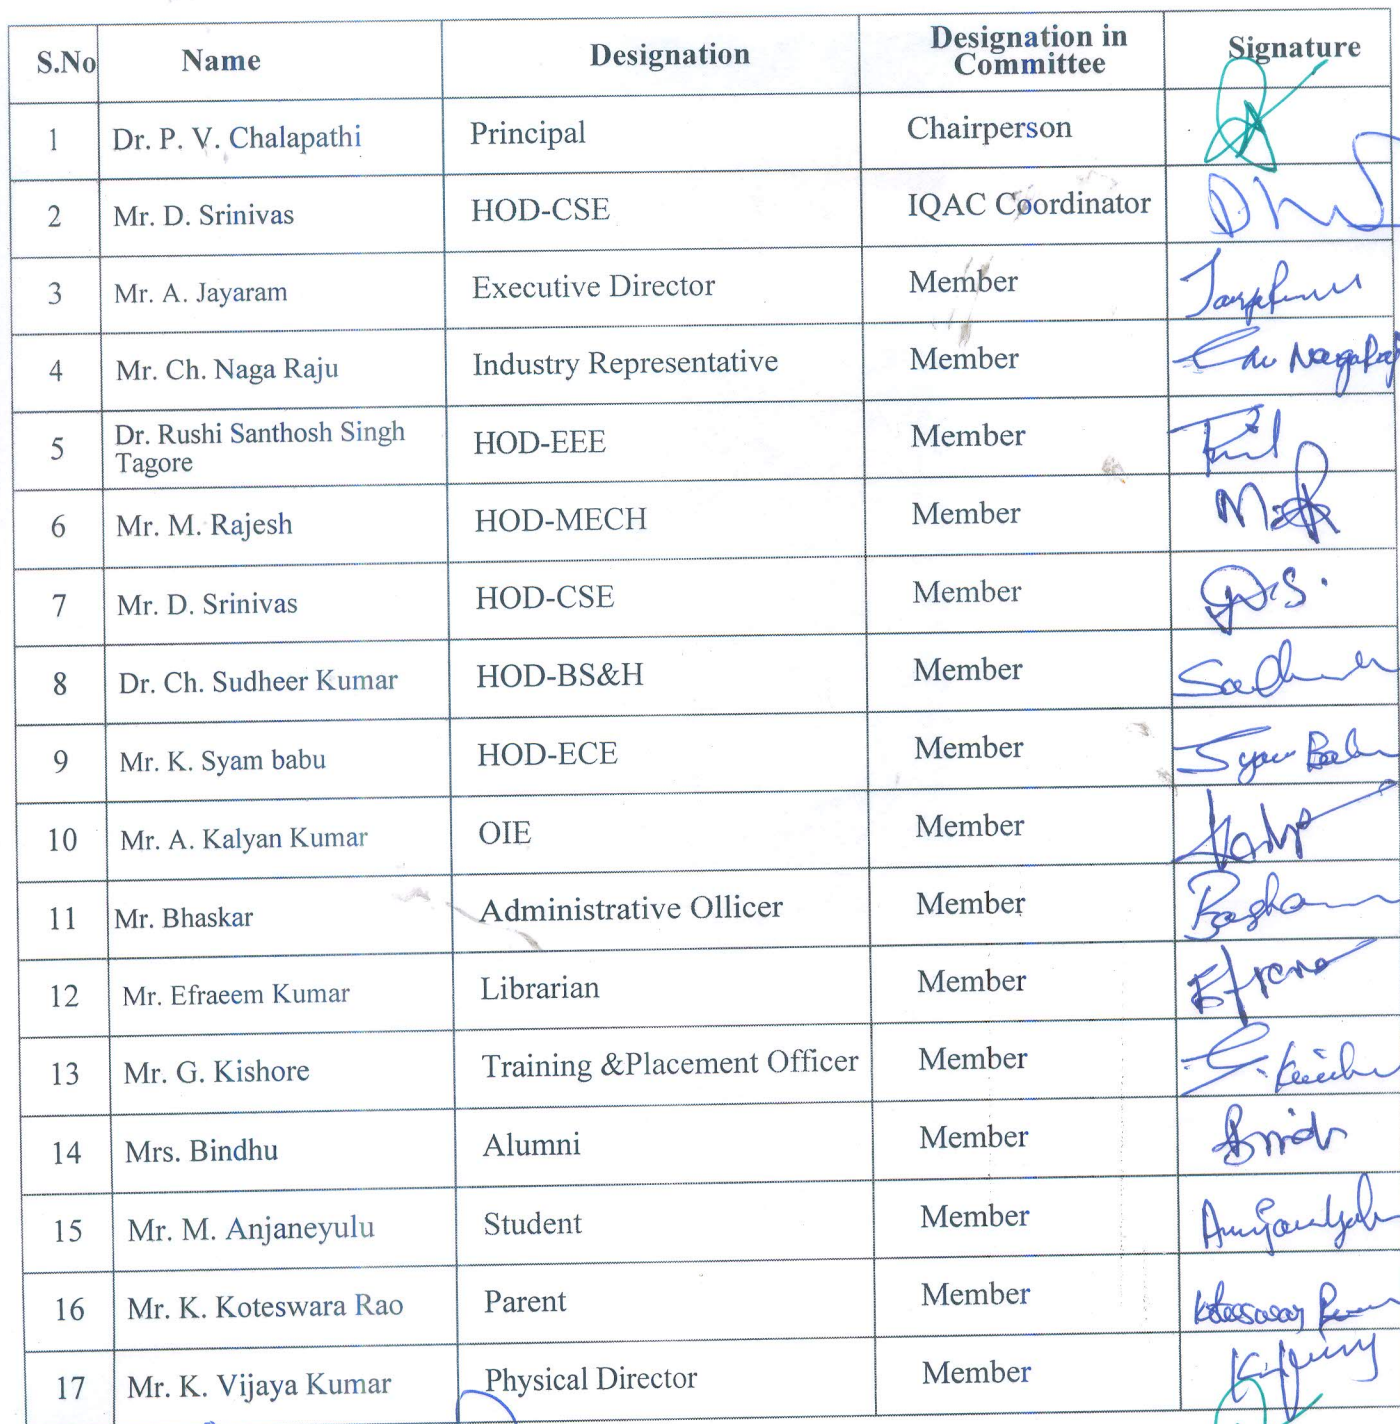 S.No Name Designation Designation in Committee Signature
1 Dr. P. V. Chalapathi Principal Chairperson
2 Mr. D. Srinivas HOD-CSE IQAC Coordinator
3 Mr. A. Jayaram Executive Director Member
4 Mr. Ch. Naga Raju Industry Representative Member
5 Dr. Rushi Santhosh Singh Tagore HOD-EEE Member
6 Mr. M. Rajesh HOD-MECH Member
7 Mr. D. Srinivas HOD-CSE Member D.S.
8 Dr. Ch. Sudheer Kumar HOD-BS&H Member
9 Mr. K. Syam babu HOD-ECE Member
10 Mr. A. Kalyan Kumar OIE Member
11 Mr. Bhaskar Administrative Ollicer Member
12 Mr. Efraeem Kumar Librarian Member
13 Mr. G. Kishore Training &Placement Officer Member
14 Mrs. Bindhu Alumni Member
15 Mr. M. Anjaneyulu Student Member
16 Mr. K. Koteswara Rao Parent Member
17 Mr. K. Vijaya Kumar Physical Director Member